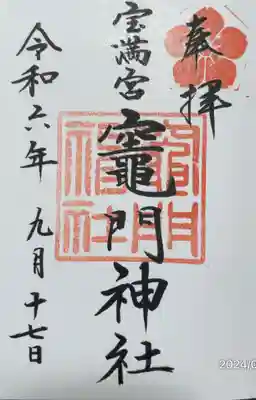 奉拝
宝満宮
竈門神社
竈門神社
令和六年 九月十七日